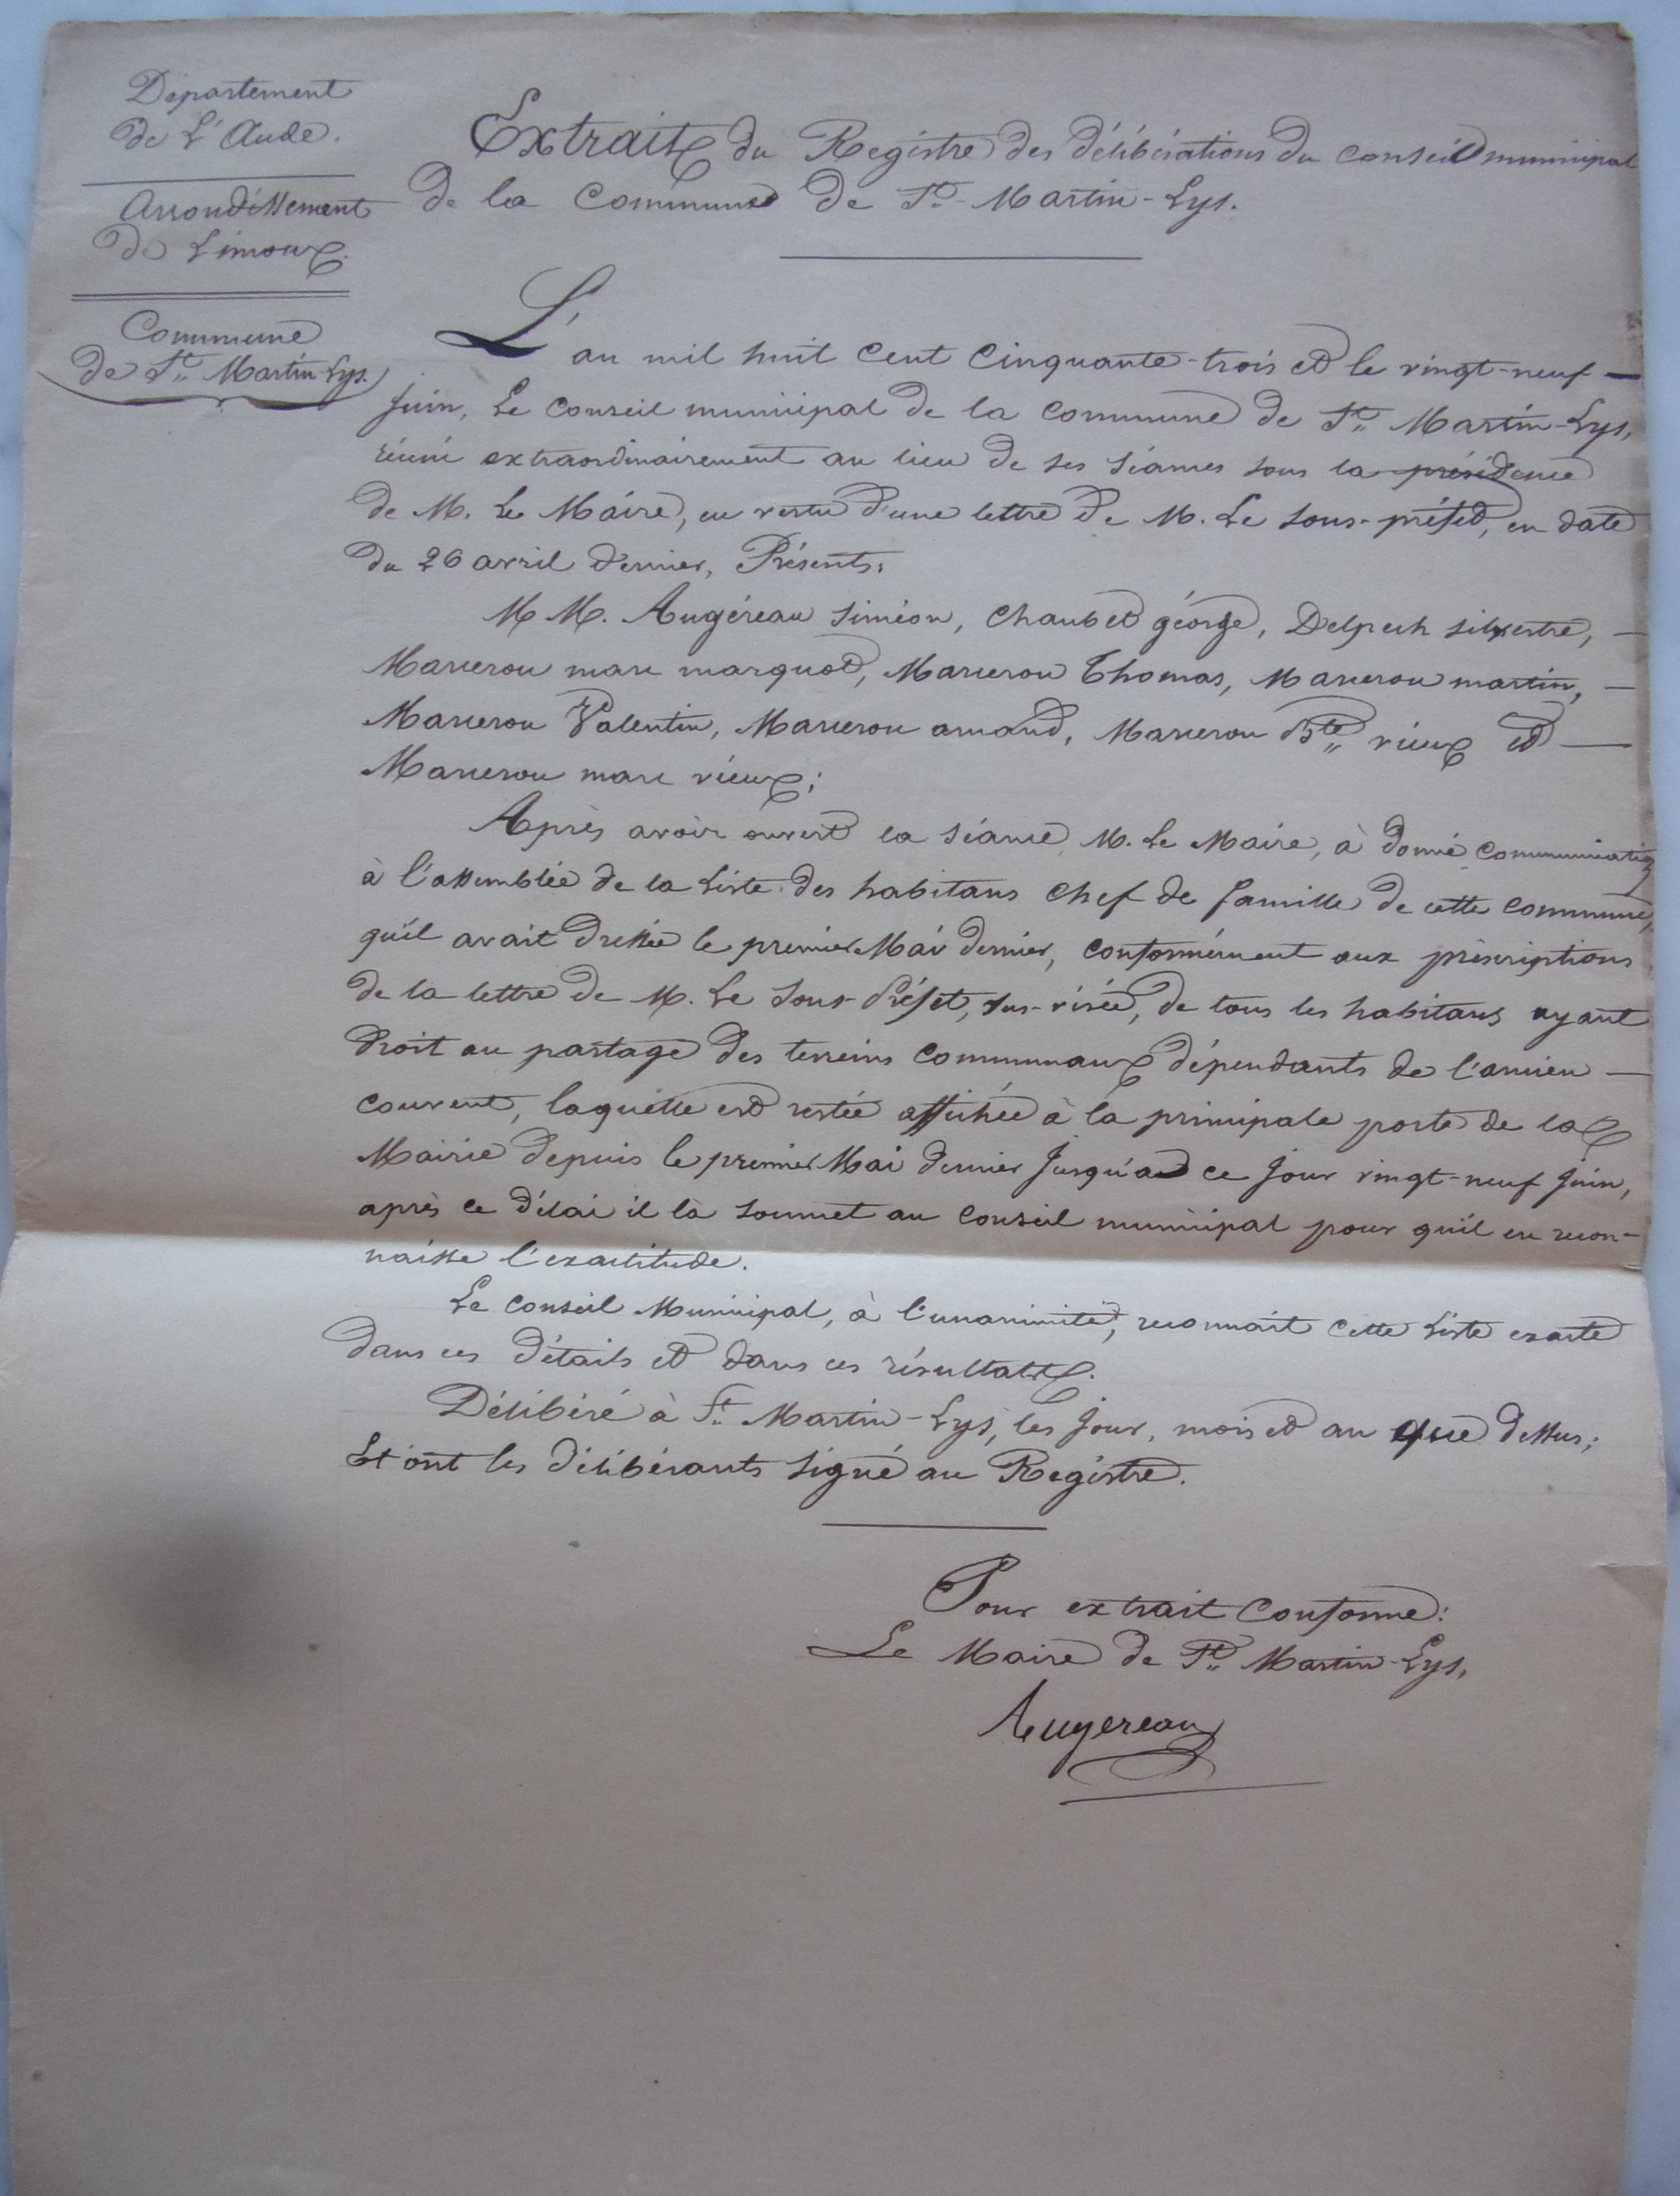 Département
de L'Aude.
Arrondissement
de Limoux.
Commune
de St. Martin-Lys.
Extrait du Registre des délibérations du conseil municipal
de la Commune de St. Martin-Lys.
L'an mil huit cent cinquante-trois et le vingt-neuf
juin, Le Conseil municipal de la commune de St. Martin-Lys,
réuni extraordinairement au lieu de ses séances sous la présidence
de M. Le Maire, en vertu d'une lettre de M. Le Sous-préfet, en date
du 26 avril dernier, Présents:
M M. Augéreau Siméon, Chaubet géorge, Delpech silvestre,
Marcerou marc marquot, Marcerou Thomas, Marcerou martin,
Marcerou Valentin, Marcerou amand, Marcerou Bte vieux et
Marcerou marc vieux;
Après avoir ouvert la séance, M. Le Maire, à donné communication
à l'assemblée de la Liste des habitans chef de famille de cette commune,
qu'il avait dressée le premier Mai dernier, conformément aux prescriptions
de la lettre de M. Le Sous-Préfet, sus-visée, de tous les habitans ayant
droit au partage des terreins communaux dépendants de l'ancien
couvent, laquelle est restée affichée à la principale porte de la
Mairie depuis le premier Mai dernier jusqu'au ce jour vingt-neuf juin,
après ce délai il la soumet au Conseil municipal pour qu'il en recon-
naisse l'exactitude.
Le Conseil Municipal, à l'unanimité, reconnait cette Liste exacte
dans ces détails et dans ces résultats.
Délibéré à St. Martin-Lys, les jour, mois et an que dessus;
Et ont les délibérants signé au Registre.
Pour extrait conforme:
Le Maire de St. Martin-Lys,
Augereau